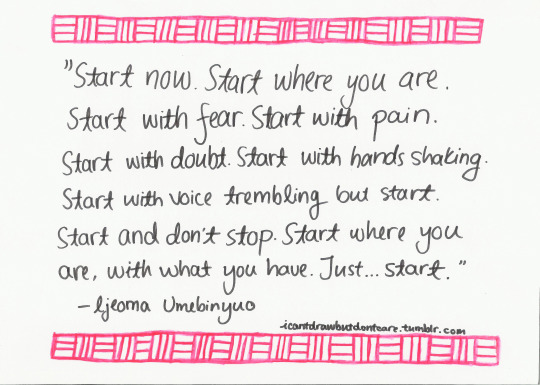 "Start now. Start where you are.
Start with fear. Start with pain.
Start with doubt. Start with hands shaking.
Start with voice trembling but start.
Start and don't stop. Start where you
are, with what you have. Just... start."
- Ijeoma Umebinyuo
-icantdrawbutdontcare.tumblr.com